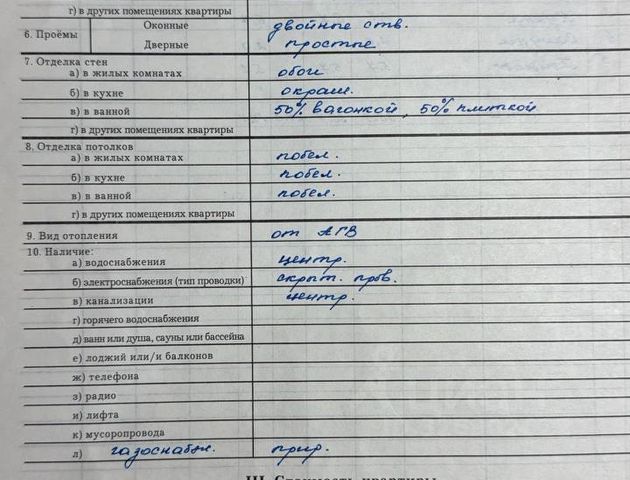 г) в других помещениях квартиры
6. Проёмы Оконные двойные ств.
Дверные простые
7. Отделка стен
а) в жилых комнатах обои
б) в кухне окраш.
в) в ванной 50% вагонкой, 50% плиткой
г) в других помещениях квартиры
8. Отделка потолков
а) в жилых комнатах побел.
б) в кухне побел.
в) в ванной побел.
г) в других помещениях квартиры
9. Вид отопления от АГВ
10. Наличие:
а) водоснабжения центр.
б) электроснабжения (тип проводки) скрыт. пров.
в) канализации центр.
г) горячего водоснабжения
д) ванн или душа, сауны или бассейна
е) лоджий или/и балконов
ж) телефона
з) радио
и) лифта
к) мусоропровода
л) газоснабж. прир.